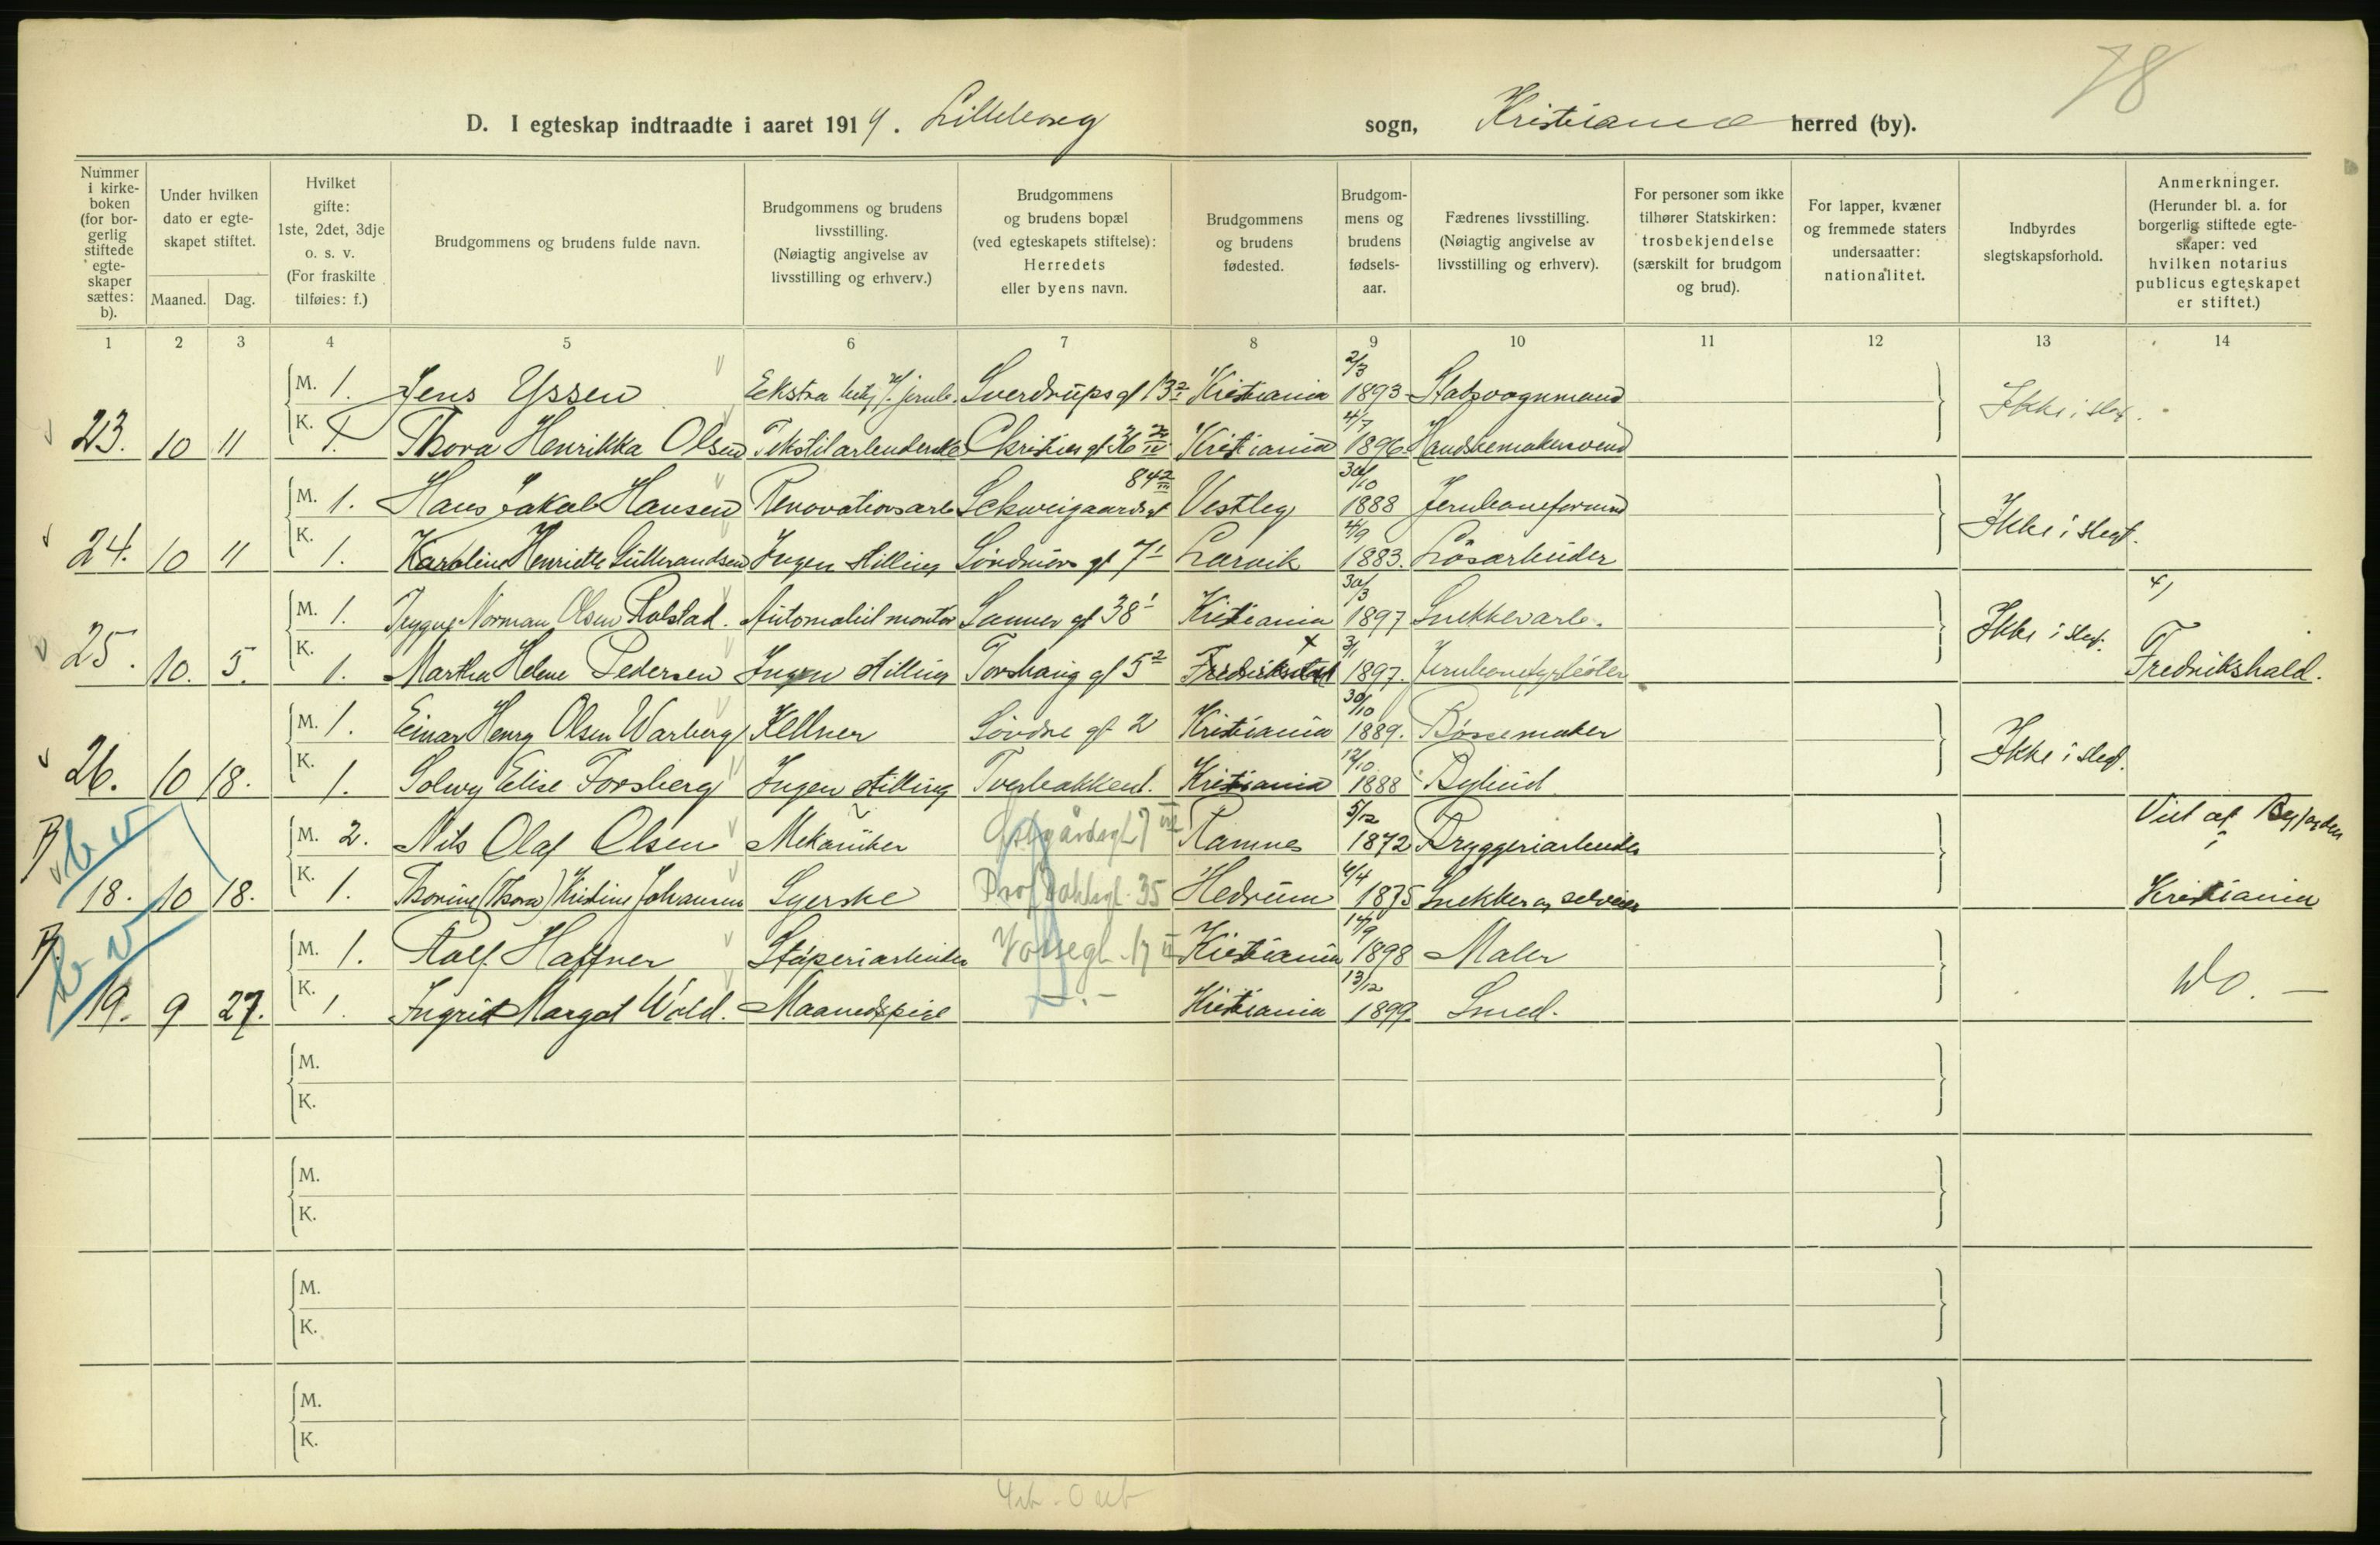 78
D. I egteskap indtraadte i aaret 1919. Lilleborg sogn, Kristiania herred (by).
Nummer i kirke-boken (for bor-gerlig stiftede egte-skaper sættes: b).
Under hvilken dato er egte-skapet stiftet.
Maaned. Dag.
Hvilket gifte: 1ste, 2det, 3dje o. s. v. (For fraskilte tilføies: f.)
Brudgommens og brudens fulde navn.
Brudgommens og brudens livsstilling. (Nøiagtig angivelse av livsstilling og erhverv.)
Brudgommens og brudens bopæl (ved egteskapets stiftelse): Herredets eller byens navn.
Brudgommens og brudens fødested.
Brudgom-mens og brudens fødsels-aar.
Fædrenes livsstilling. (Nøiagtig angivelse av livsstilling og erhverv).
For personer som ikke tilhører Statskirken: trosbekjendelse (særskilt for brudgom og brud).
For lapper, kvæner og fremmede staters undersaatter: nationalitet.
Indbyrdes slegtskapsforhold.
Anmerkninger. (Herunder bl. a. for borgerlig stiftede egte-skaper: ved hvilken notarius publicus egteskapet er stiftet.)
1 2 3 4 5 6 7 8 9 10 11 12 13 14
M. 1. Jens Yssen Ekstra betj. v/ jernb. Sverdrups gt 13 2 Kristiania 2/3 1893 Stadsvognmand Ikke i slegt.
23. 10 11 K. 1. Thora Henrikka Olsen Tekstilarbeiderske Christies gt 36 Kristiania 4/7 1896 Handskemakersvend
M. 1. Hans Jakob Hansen Renovationsarb Schweigaardsgt 84 2 Vestby 30/10 1888 Jernbaneformand Ikke i slegt.
24. 10 11 K. 1. Karoline Henriette Gulbrandsen Ingen stilling Söndmörs gt 7 1 Larvik 4/9 1883. Løsarbeider
M. 1. Trygve Norman Olsen Rolstad. Automobilmontør Sanner gt 38 1 Kristiania 30/3 1897 Snekkerarb. Ikke i slegt. 4)
25. 10. 5. K. 1. Martha Helene Pedersen Ingen stilling Torshaug gt 5 2 Fredrikstad x 3/1 1897. Fredrikshald.
M. 1. Einar Henry Olsen Warberg Kellner Söndre gt 2 Kristiania 30/10 1889. Børsemaker Ikke i slegt.
26. 10 18. K. 1. Solvey Elise Forsberg Ingen stilling Tverbakkent. Kristiania 12/10 1888 Bybud
B M. 2. Nils Olaf Olsen Mekaniker Ramnes 5/12 1872 Bryggeriarbeider Viet af Byfogden i
18. 10 18. K. 1. Thorine (Thora) Kristine Johansen Syerske Prof Dahlsgt. 35 Hedrum 4/4 1875 Snekker og selveier Kristiania
B. M. 1. Rolf Haffner Støperiarbeider Vossegt. 17 Kristiania 14/9 1898 Maler
19. 9 27. K. 1. Ingrid Margot Wold. Maanedspige — . — Kristiania 13/12 1899. Smed. Do. —
M.
K.
M.
K.
M.
K.
M.
K.